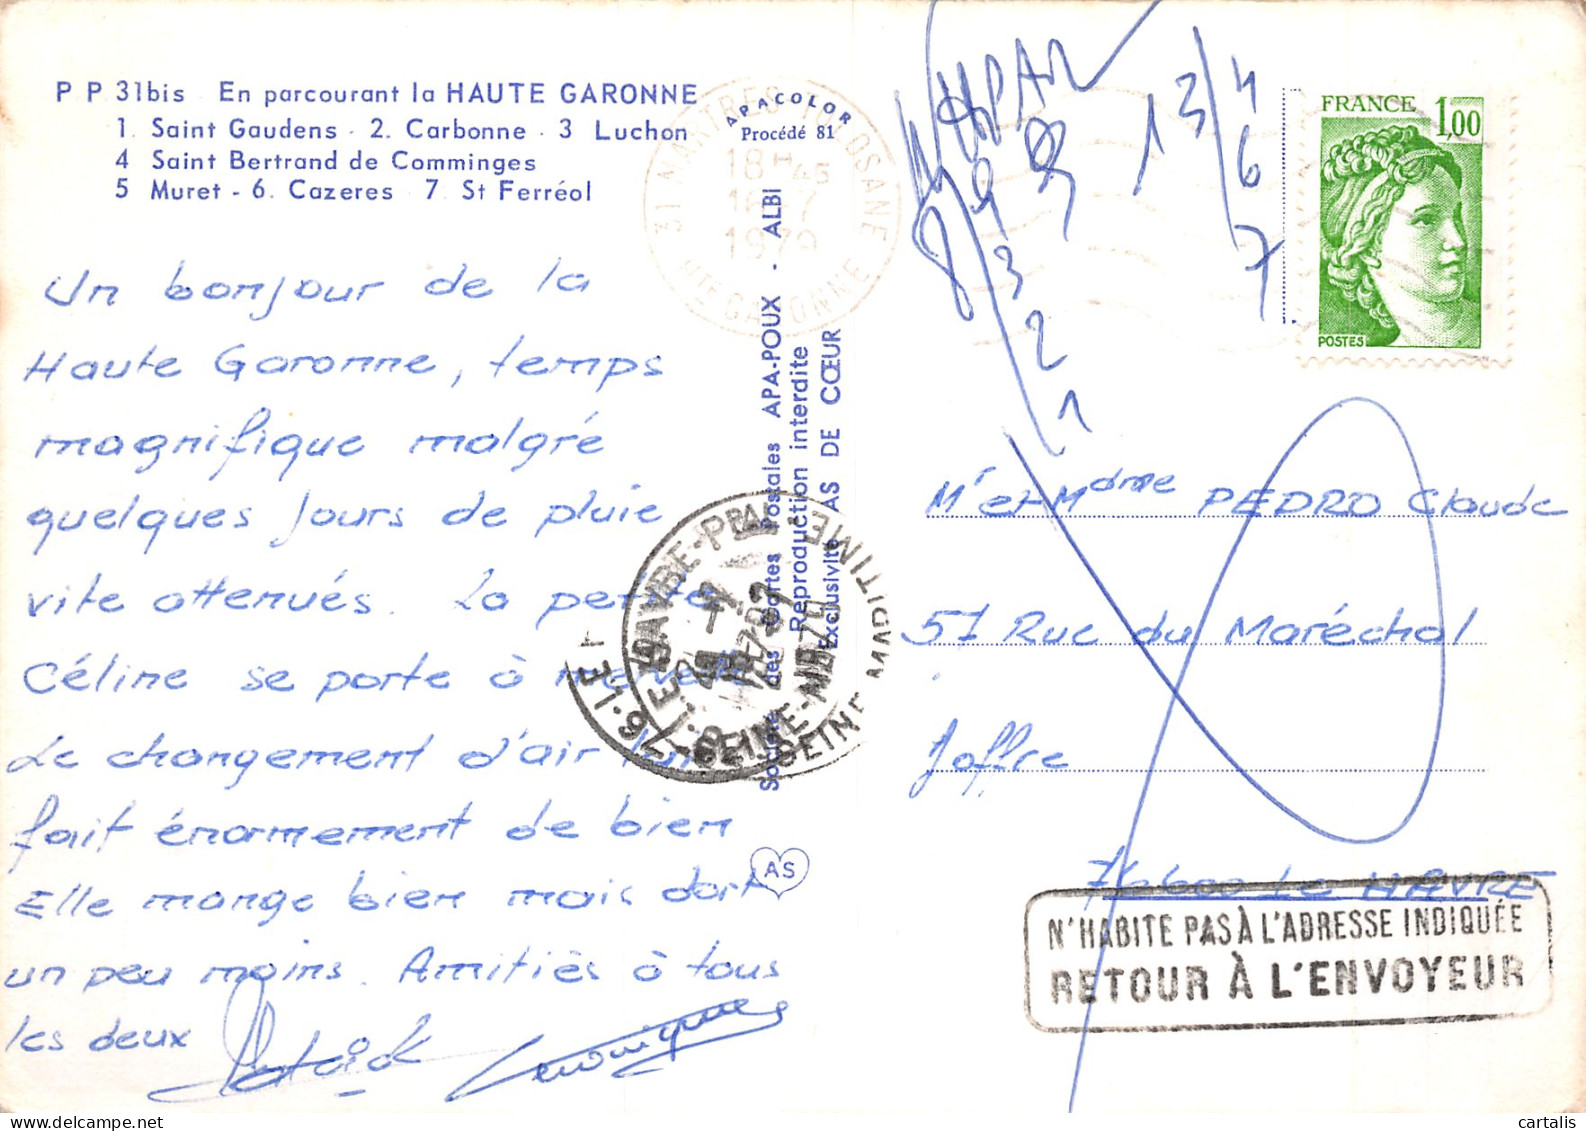 P P 31bis En parcourant la HAUTE GARONNE
1. Saint Gaudens - 2. Carbonne - 3 Luchon
4 Saint Bertrand de Comminges
5 Muret - 6. Cazeres 7. St Ferréol
APACOLOR
Procédé 81
31 MARTRES-TOLOSANE
18H45
16-7
1979
HTE GARONNE
Un bonjour de la
Haute Garonne, temps
magnifique malgré
quelques jours de pluie
vite attenués. La petite
Céline se porte à
Le changement d'air lui
fait énormement de bien
Elle mange bien mais dort
un peu moins. Amitiés à tous
les deux
Patrick Veronique
Société des Cartes Postales APA-POUX - ALBI
Reproduction interdite
Exclusivité AS DE CŒUR
AS
SEINE-MARITIME
13/4
6
7
9
8
3
2
1
FRANCE 1,00
POSTES
Mr et Mdme PEDRO Claude
57 Rue du Maréchal
Joffre
76600 Le HAVRE
N'HABITE PAS À L'ADRESSE INDIQUÉE
RETOUR À L'ENVOYEUR
cartalis